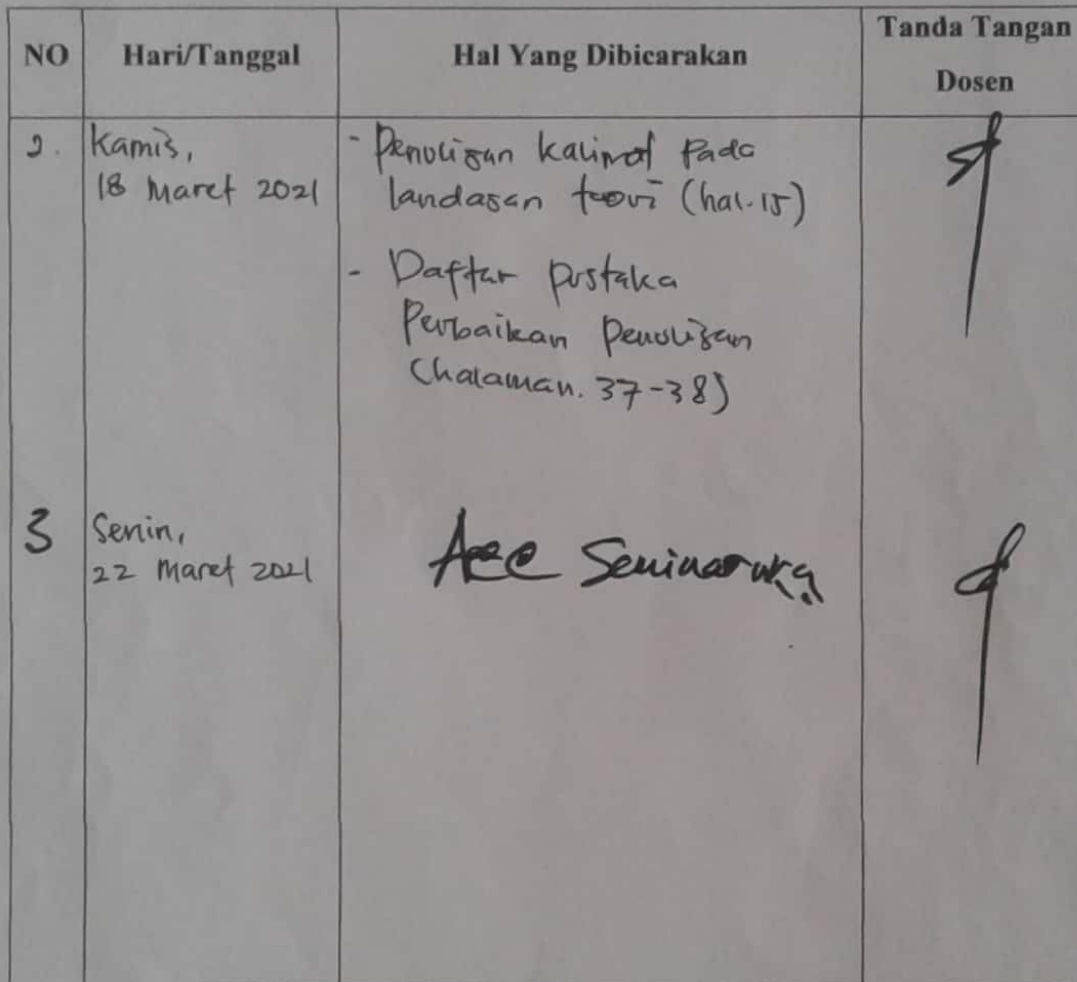 NO Hari/Tanggal Hal Yang Dibicarakan Tanda Tangan Dosen
2. Kamis,
18 Maret 2021
- Penulisan kalimat pada
landasan teori (hal.15)
- Daftar pustaka
Perbaikan Penulisan
(halaman. 37-38)
3 Senin,
22 Maret 2021
Acc Seminar